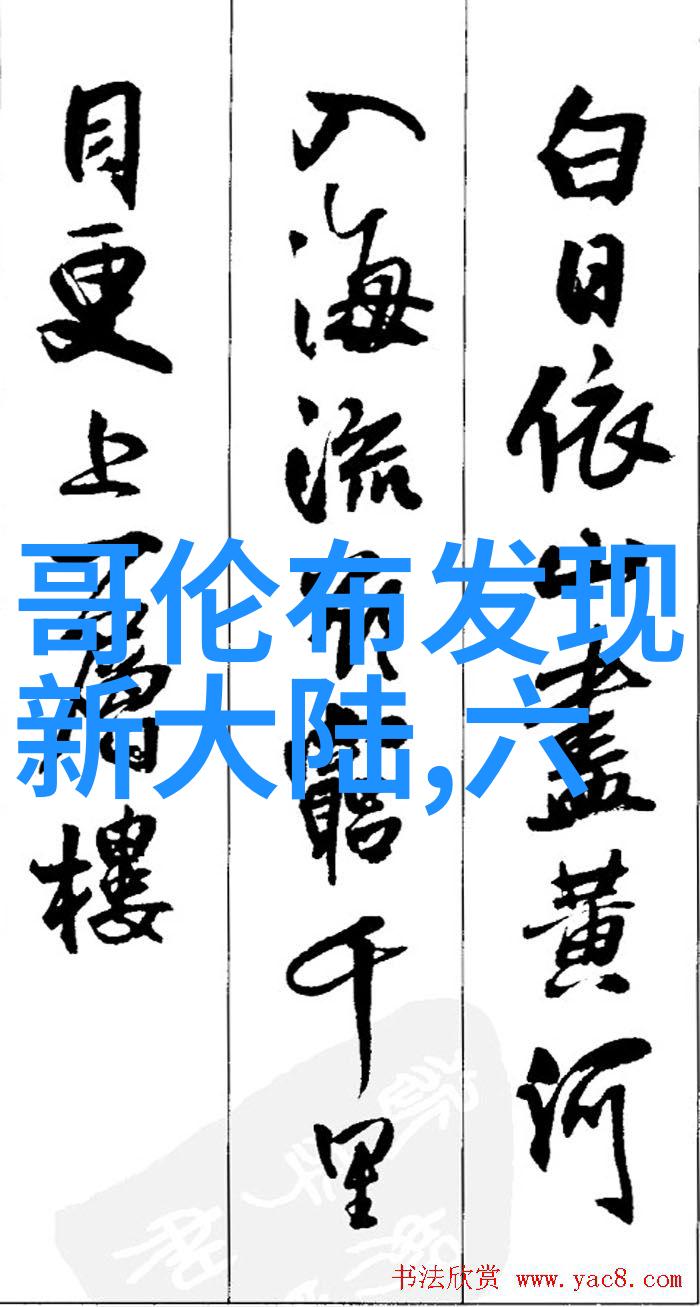 白日依山盡黄河
入海流欲窮千里
目更上一層樓
哥伦布发现
新大陆,六
书法欣赏 www.yac8.com